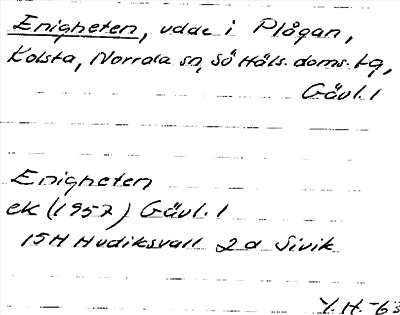 Enigheten, udde i Plågan,
Kolsta, Norrala sn, Sö Häls. doms. tg,
Gävl. l
Enigheten
ek (1957) Gävl. l
15H Hudiksvall 2a Sivik
Y.H. -63